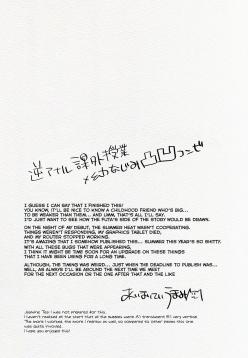 逆アナル課外授業
×幼なじみ凸凹コンビ
I GUESS I CAN SAY THAT I FINISHED THIS!
YOU KNOW, IT'LL BE NICE TO KNOW A CHILDHOOD FRIEND WHO'S BIG...
TO BE WEAKER THAN THEM... AND UMM, THAT'S ALL I'LL SAY.
I'D JUST WANT TO SEE HOW THE FUTA'S SIDE OF THE STORY WOULD BE DRAWN.
ON THE NIGHT OF MY DEBUT, THE SUMMER HEAT WASN'T COOPERATING.
THINGS WEREN'T RESPONDING, MY GRAPHICS TABLET DIED,
AND MY ROUTER STOPPED WORKING.
IT'S AMAZING THAT I SOMEHOW PUBLISHED THIS... SUMMER THIS YEAR WAS SO SHITTY.
WITH ALL THESE BUGS THAT WERE APPEARING,
I THINK IT MIGHT BE TIME SOON FOR AN UPGRADE ON THESE THINGS
THAT I HAVE BEEN USING FOR A LONG TIME.
ALTHOUGH, THE TIMING WAS WEIRD... JUST WHEN THE DEADLINE TO PUBLISH WAS...
WELL, AS ALWAYS I'LL BE AROUND THE NEXT TIME WE MEET
FOR THE NEXT OCCASION OR THE ONE AFTER THAT AND THE LIKE
I was not prepared for this.
I hope you enjoyed this!